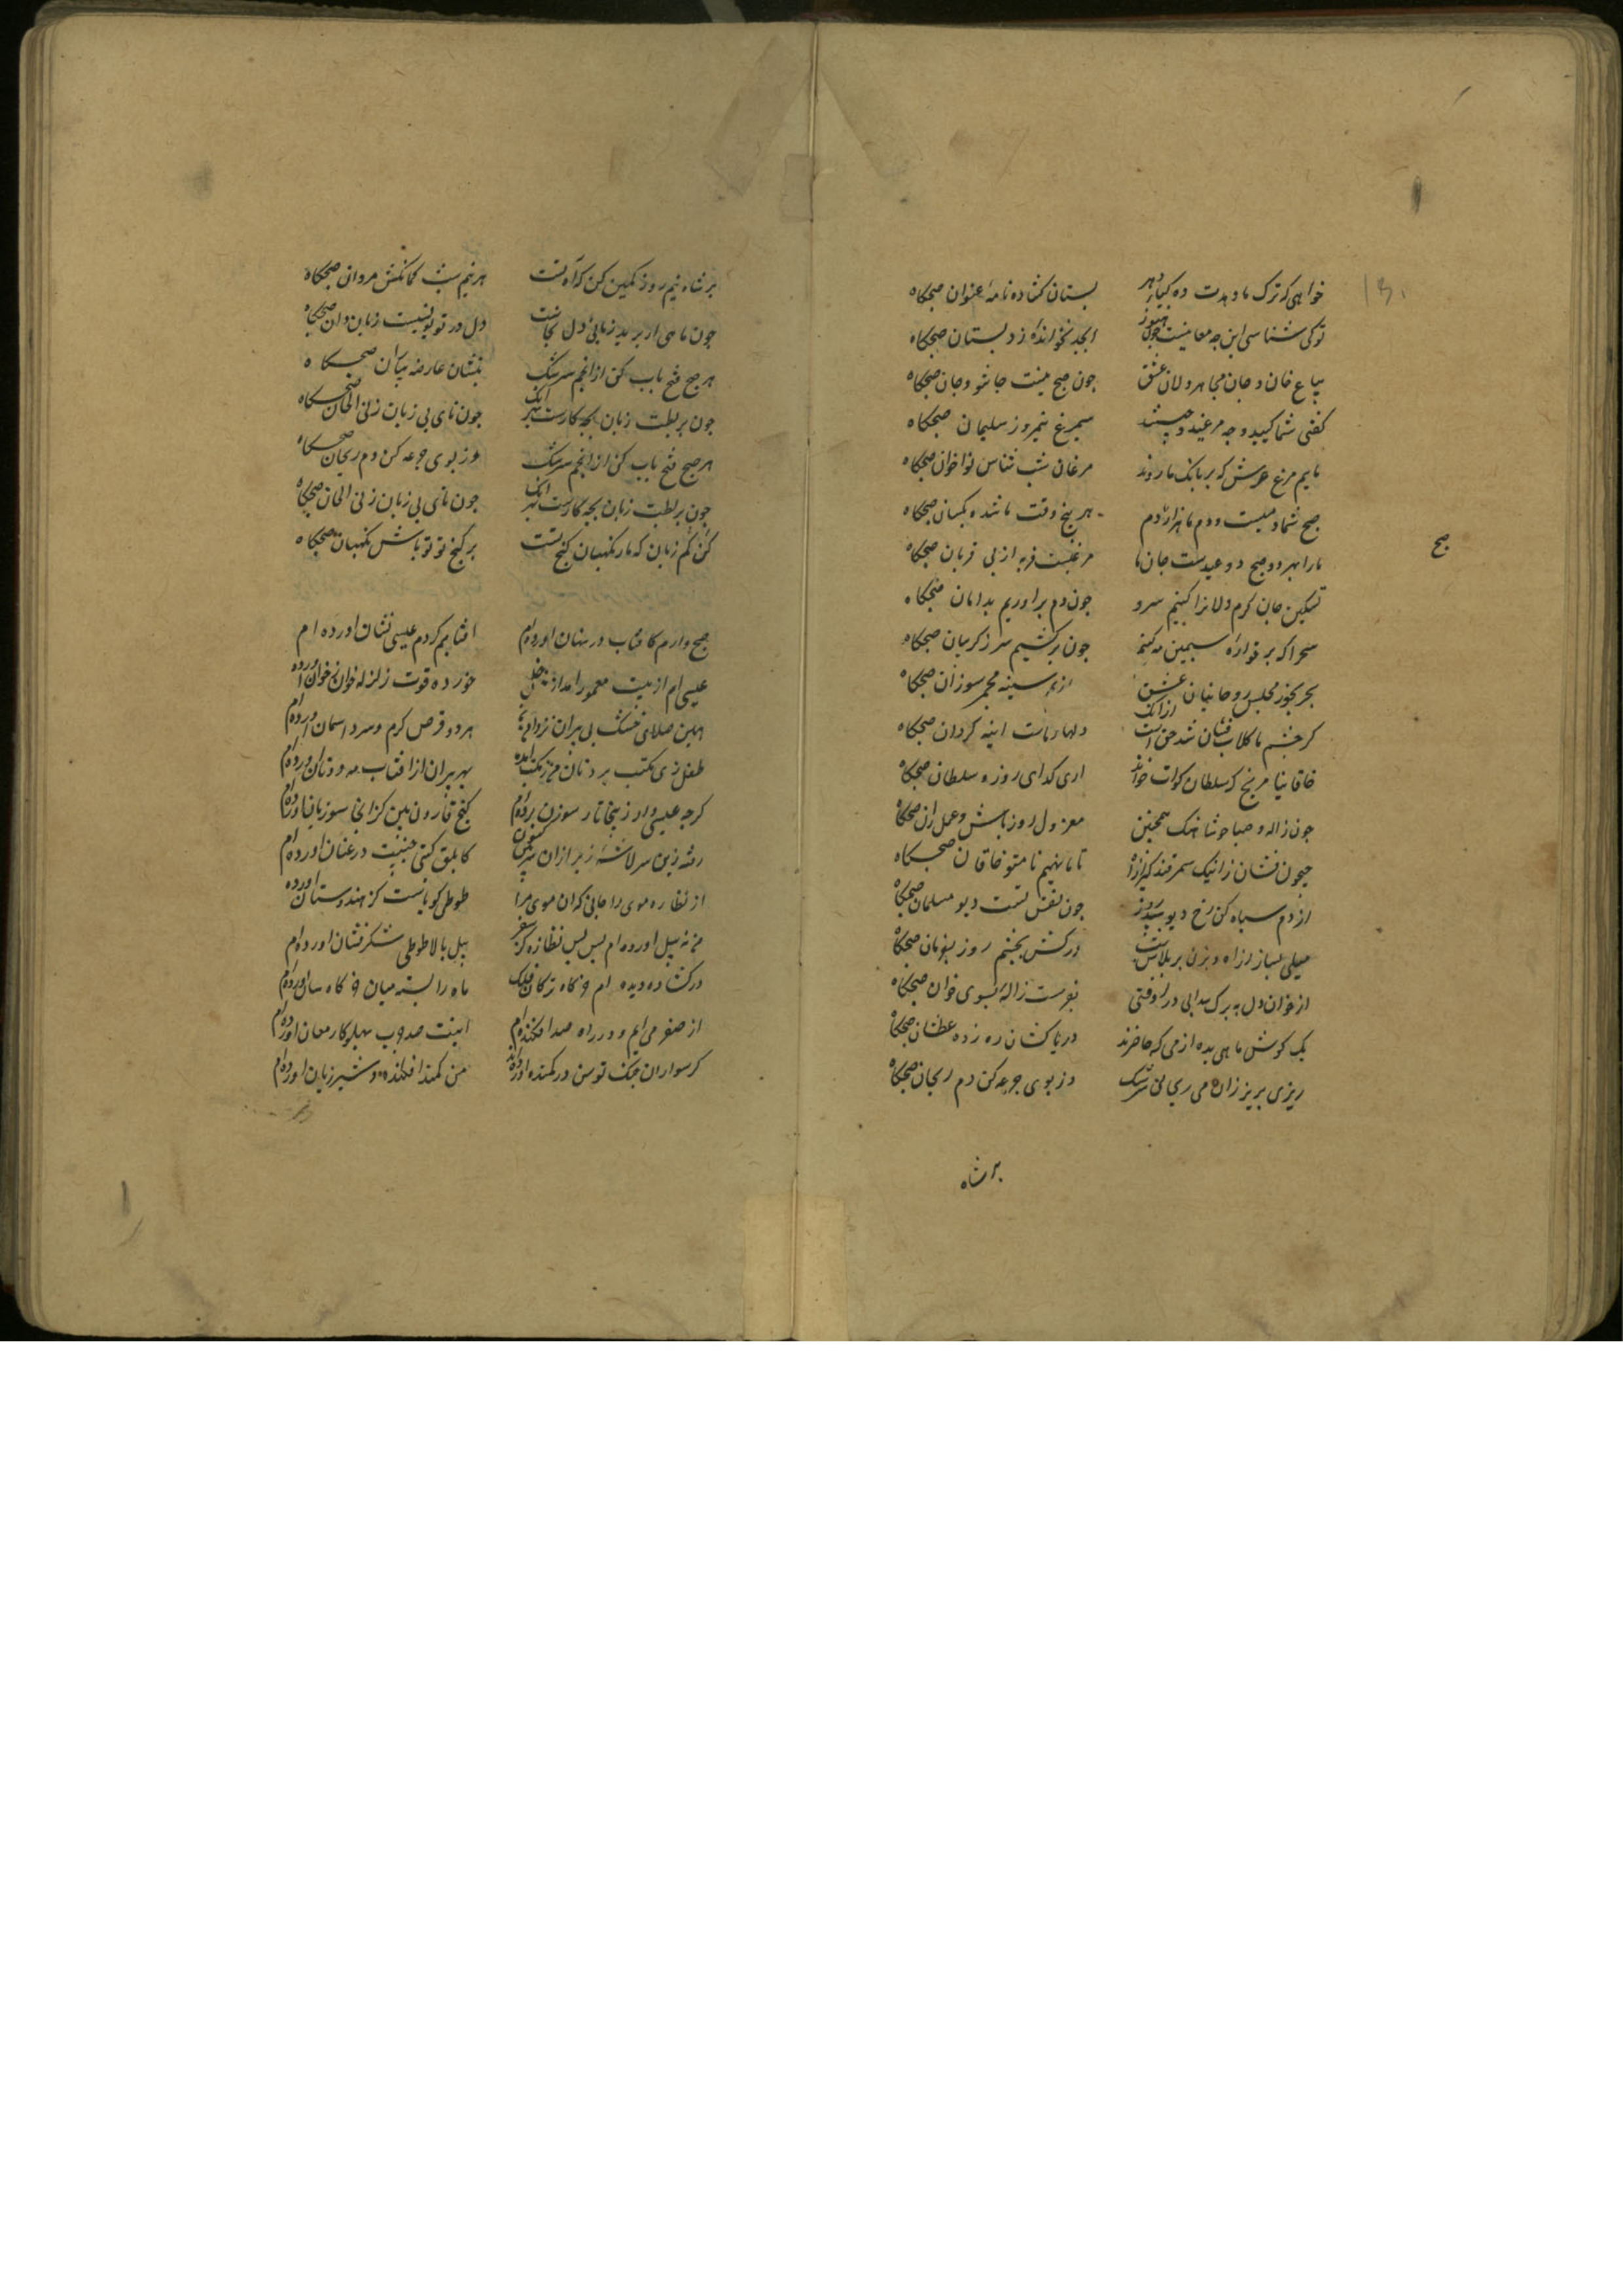 خواهی که ترک ماه دهدت ده کیایر دهر بستان کشاده نامه عنوان صبحگاه
تو کی شناسی این چه معانیست چون هنوز ابجد نخوانده ز دبستان صبحگاه
بیاع خان و جان مجاهر دلان عشق چون صبح نیست جانشو و جان صبحگاه
کفتی شما کیید و چه مرغید و چیستند سیمرغ نیمروز سلیمان صبحگاه
ماییم مرغ عرش که بر بانک ما روند مرغان شب شناس نواخوان صبحگاه
صبح شما دمیست و دم ما هزار دم هر پنج وقت ما شده یکسان صبحگاه
صبح
ما را بهر دو صبح دو عیدست جان ما مرغیست فربه از پی قربان صبحگاه
تسکین جان کرم دلانرا کنیم سرد چون دم براوریم بدامان صبحگاه
صحرا که بر قواره سیمین مه کنم چون برکشیم سر ز کریبان صبحگاه
بهر بخور مجلس روحانیان عشق از سینه مجمر سوزان صبحگاه
کر چشم ما کلاب فشان شد حق است ازانک دلها ماست اینه کردان صبحگاه
خاقانیا مرنج که سلطان کدات خواند اری کدای روزه و سلطان صبحگاه
چون ژاله و صبا خوشا نهک همچنین معزول روز باش و عمل ران صبحگاه
جیحون فشان زانیک سمرقند تا ما نهیم نام تو خاقان صبحگاه
از دم سیاه کن رخ دیو سپید روز چون نفش تست دیو مسلمان صبحگاه
میلی بساز ز اه و بزن بر پلاس شب درکش بچشم روز بفرمان صبحگاه
از خوان دل به برک سدابی دراوفتی بفرست ژاله بسوی خوان صبحگاه
یک کوش ماهی بده از می که حاضرند دریاکشان ره زده عطشان صبحگاه
ریزی بریز زان می ریحانی سرشک وز بوی جرعه کن دم ریحان صبحگاه
بر شاه
بر شاه نیم روز کمین کن که اه تست هر نیم شب کمانکش مردان صبحگاه
چون ماهی ار برید زبانی دل بجاست دل در تو یونسیست زبان دان صبحگاه
هر صبح فتح باب کن از انجم سرشک بنشان عارضه ز بیابان صبحگاه
چون بربطت زبان بچه کارست بهر انک چون نای بی زبان زنی الحان صبحگاه
هر صبح فتح باب کن از انجم سرشک وز بوی جرعه کن دم ریحان صبحگاه
چون بربطت زبان بچه کارست بهر انک چون نای بی زبان زنی الحان صبحگاه
کن کم زبان که مار نکهبان کنج تست بر کنج تو تو باش نکهبان صبحگاه
صبح وارم کافتاب در نهان اورده ام افتابم کز دم عیسی نشان اورده ام
عیسی ام از بیت معمور امده از خورده قوت ز زله اخوان خوان اورده
هین صلای خشک بی پیران تر دامن هر دو قرص کرم و سرد اسمان اورده ام
طفل زی مکتب برد نان من ز مکتب امده بهر پیران از افتاب و مه دو نان اورده ام
کرچه عیسی وار زینجا تار سوزن برده ام کنج قارون بین کز انجا سوزیان اورده ام
رفته زین سر لاشه زیر از ان سر بین کنون کابلق کیتی جنیبت در عنان اورده ام
از نظاره موی را جانی که ان موی مرا طوطی کویاست کز هندوستان اورده
من نه پیل اورده ام بس بس نظاره کز سفر پیل بالا طوطی شکرفشان اورده ام
درکشاده دیده ام خرکاه ترکان فلک ماه را بسته میان خرکاه سان اورده ام
از سفر می ایم و در راه صید افکنده ام اینت صید چرب پهلو کارمغان اورده ام
کر سواران خنک توسن در کمند اورده اند من کمند افکنده و شیر ژیان اورده ام